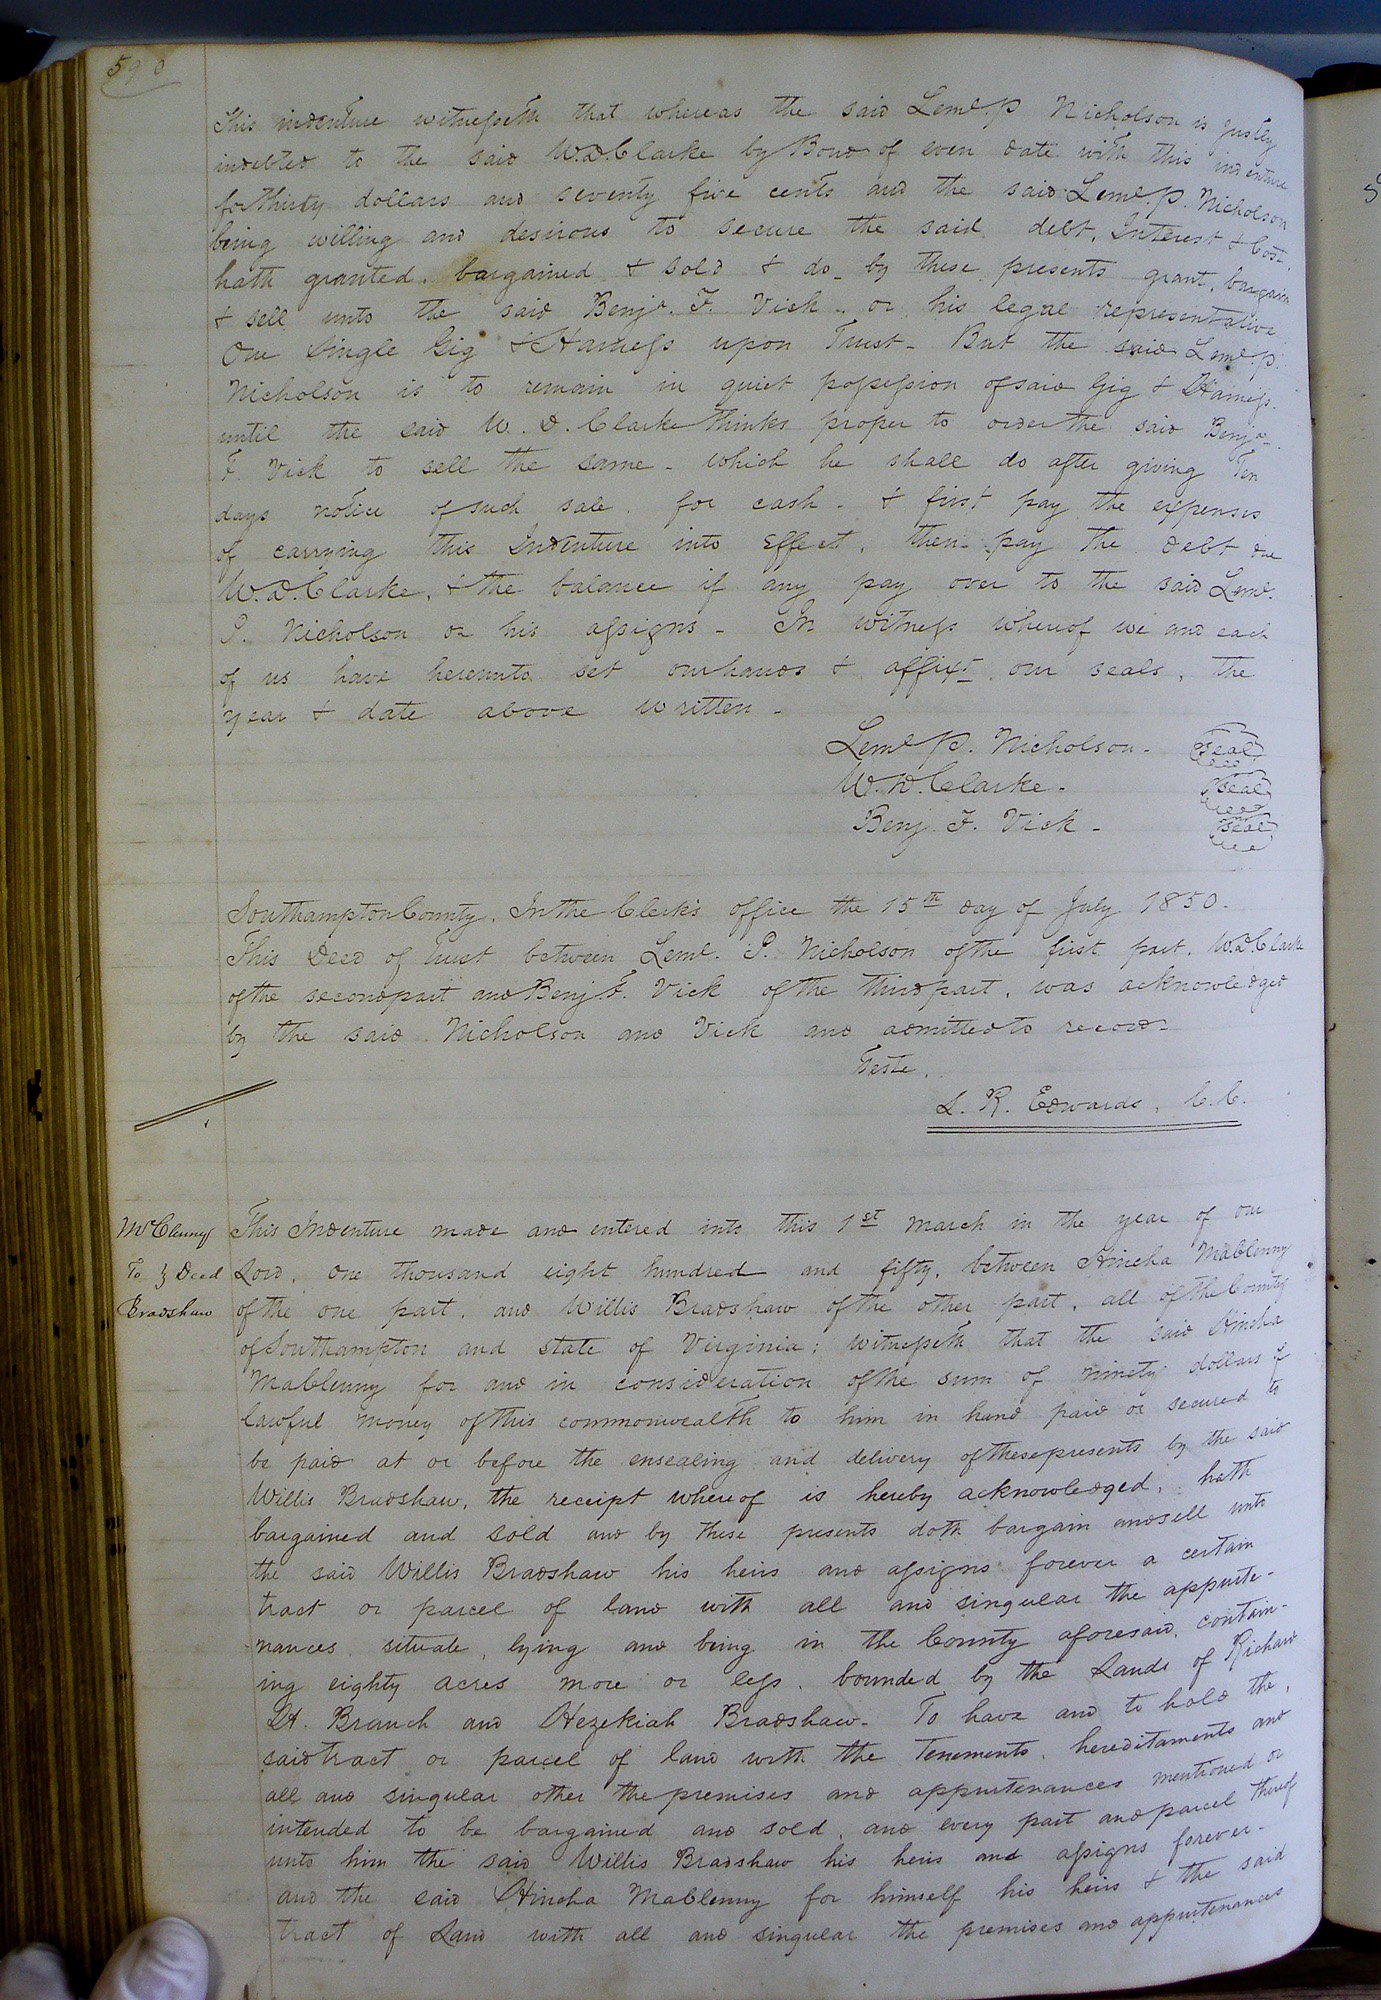 590
This indenture witnesseth that whereas the said Leml. P Nicholson is justly
indebted to the said W.D. Clarke by Bond of even date with this indenture
for thirty dollars and seventy five cents and the said Leml. P. Nicholson
being willing and desirous to secure the said debt, Interest & Cost.
hath granted, bargained & sold & do by these presents grant, bargain
& sell unto the said Benja. F. Vick, or his legal representative
One Single Gig & Harness upon Trust - But the said Leml P.
Nicholson is to remain in quiet possession of said Gig & Harness.
until the said W. D. Clarke thinks proper to order the said Benja.
F. Vick to sell the same - which he shall do after giving Ten
days notice of such sale for cash - & first pay the expenses
of carrying this Indenture into Effect, then pay the debt due
W. D. Clarke, & the balance if any pay over to the said Leml.
P. Nicholson or his assigns - In witness whereof we and each
of us have hereunto set our hands & affixt our seals, the
year & date above written -
Leml P. Nicholson - Seal
W. D. Clarke - Seal
Benj. F. Vick - Seal
Southampton County. In the Clerk's office the 15th day of July 1850.
This Deed of Trust between Leml. P. Nicholson of the first part, W.D. Clarke
of the second part and Benj F. Vick of the third part, was acknowledged
by the said Nicholson and Vick and admitted to record -
Teste,
L. R. Edwards, C.C.
McClenny
To } Deed
Bradshaw
This Indenture made and entered into this 1st March in the year of our
Lord, one thousand eight hundred and fifty, between Hincha McClenny
of the one part, and Willis Bradshaw of the other part, all of the County
of Southampton and state of Virginia; witnesseth that the said Hincha
McClenny for and in consideration of the sum of ninety dollars of
lawful money of this commonwealth to him in hand paid or secured to
be paid at or before the ensealing and delivery of these presents by the said
Willis Bradshaw, the receipt whereof is hereby acknowledged, hath
bargained and sold and by these presents doth bargain and sell unto
the said Willis Bradshaw his heirs and assigns forever a certain
tract or parcel of land with all and singular the appurte-
nances situate, lying and being in the County aforesaid, contain-
ing eighty acres more or less, bounded by the Lands of Richard
H. Branch and Hezekiah Bradshaw - To have and to hold the
said tract or parcel of land with the Tenements, hereditaments and
all and singular other the premises and appurtenances mentioned or
intended to be bargained and sold, and every part and parcel thereof
unto him the said Willis Bradshaw his heirs and assigns forever -
and the said Hincha McClenny for himself his heirs & the said
tract of Land with all and singular the premises and appurtenances